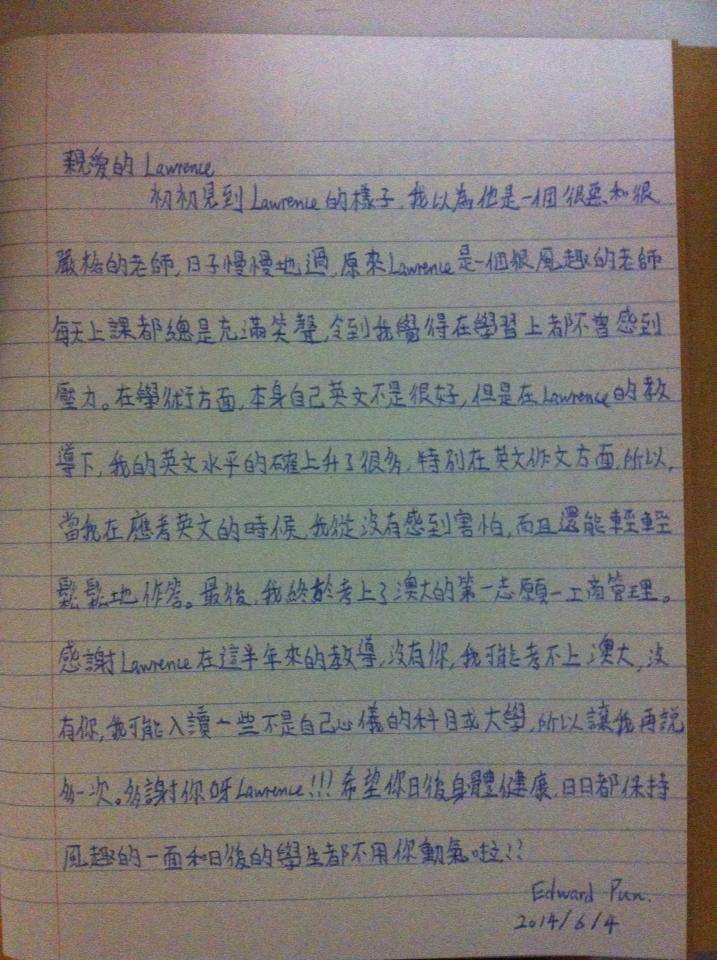 親愛的 Lawrence
初初見到 Lawrence 的樣子，我以為他是一個很惡和很
嚴格的老師，日子慢慢地過，原來 Lawrence 是一個很風趣的老師
每天上課都總是充滿笑聲，令到我覺得在學習上都不會感到
壓力。在學術方面，本身自己英文不是很好，但是在 Lawrence 的教
導下，我的英文水平的確上升了很多，特別在英文作文方面，所以，
當我在應考英文的時候，我從沒有感到害怕，而且還能輕輕
鬆鬆地作答。最後，我終於考上了澳大的第一志願－工商管理。
感謝 Lawrence 在這半年來的教導，沒有你，我可能考不上澳大，沒
有你，我可能入讀一些不是自己心儀的科目或大學，所以讓我再說
多一次。多謝你呀 Lawrence!!! 希望你日後身體健康，日日都保持
風趣的一面和日後的學生都不用你動氣啦!!
Edward Pun.
2014/6/4